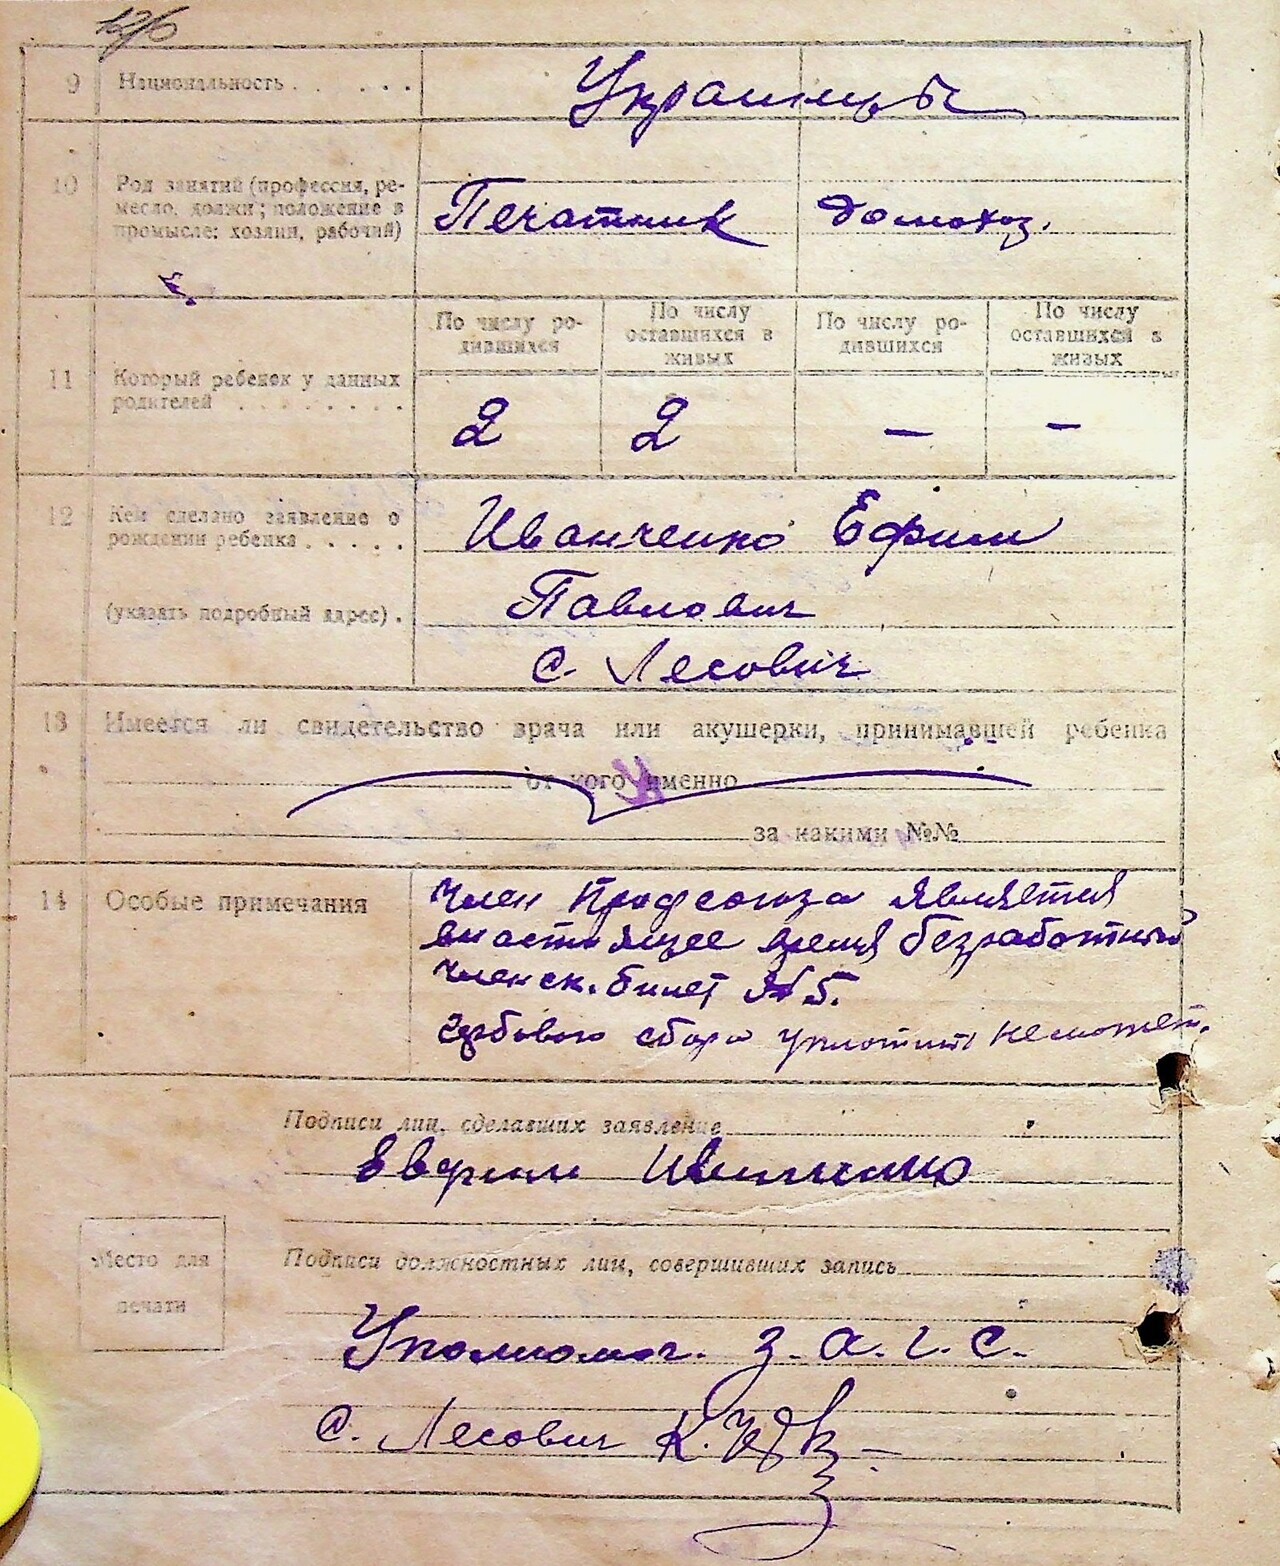 9 Национальность . . . . . Украинцы
10 Род занятий (профессия, ре-
месло, должн; положение в
промысле: хозяин, рабочий)
Печатник домохоз.
По числу ро-
дившихся
По числу
оставшихся в
живых
По числу ро-
дившихся
По числу
оставшихся в
живых
11 Который ребенок у данных
родителей . . . . . . . .
2 2 — —
12 Кем сделано заявление о
рождении ребенка . . . . .
(указать подробный адрес) .
Иванченко Ефим
Павлович
с. Лесович
13 Имеется ли свидетельство врача или акушерки, принимавшей ребенка
от кого именно
за какими №№
14 Особые примечания
Член Профсоюза является
внастоящее время безработный
Членск. билет № 5.
Гербового сбора уплотить неможет.
Подписи лиц, сделавших заявление
Место для
печати
Подписи должностных лиц, совершивших запись
Уполномоч. З. А. Г. С.
с. Лесович К.